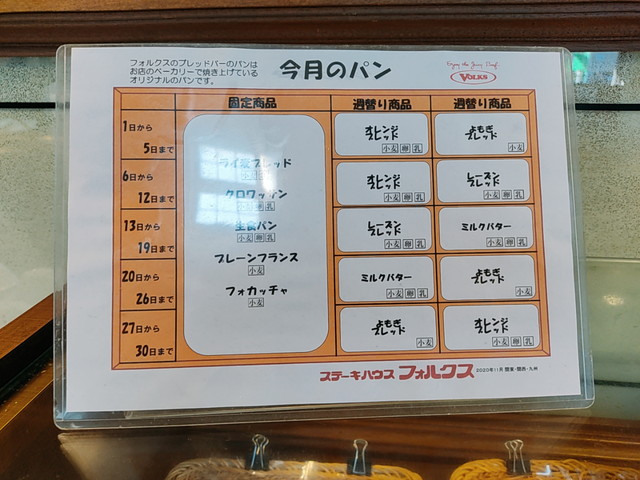 フォルクスのブレッドバーのパンは
お店のベーカリーで焼き上げている
オリジナルのパンです。
今月のパン
Enjoy the Juicy Beef.
VOLKS
固定商品 週替り商品 週替り商品
1日から
5日まで
ライ麦ブレッド
小麦
クロワッサン
小麦 卵 乳
主食パン
小麦 卵 乳
プレーンフランス
小麦
フォカッチャ
小麦
オレンジ
ブレッド
小麦 卵 乳
よもぎ
ブレッド
小麦
6日から
12日まで
オレンジ
ブレッド
小麦 卵 乳
レーズン
ブレッド
小麦 卵 乳
13日から
19日まで
レーズン
ブレッド
小麦 卵 乳
ミルクバター
小麦 卵 乳
20日から
26日まで
ミルクバター
小麦 卵 乳
よもぎ
ブレッド
小麦
27日から
30日まで
よもぎ
ブレッド
小麦
オレンジ
ブレッド
小麦 卵 乳
ステーキハウス フォルクス 2020年11月 関東・関西・九州